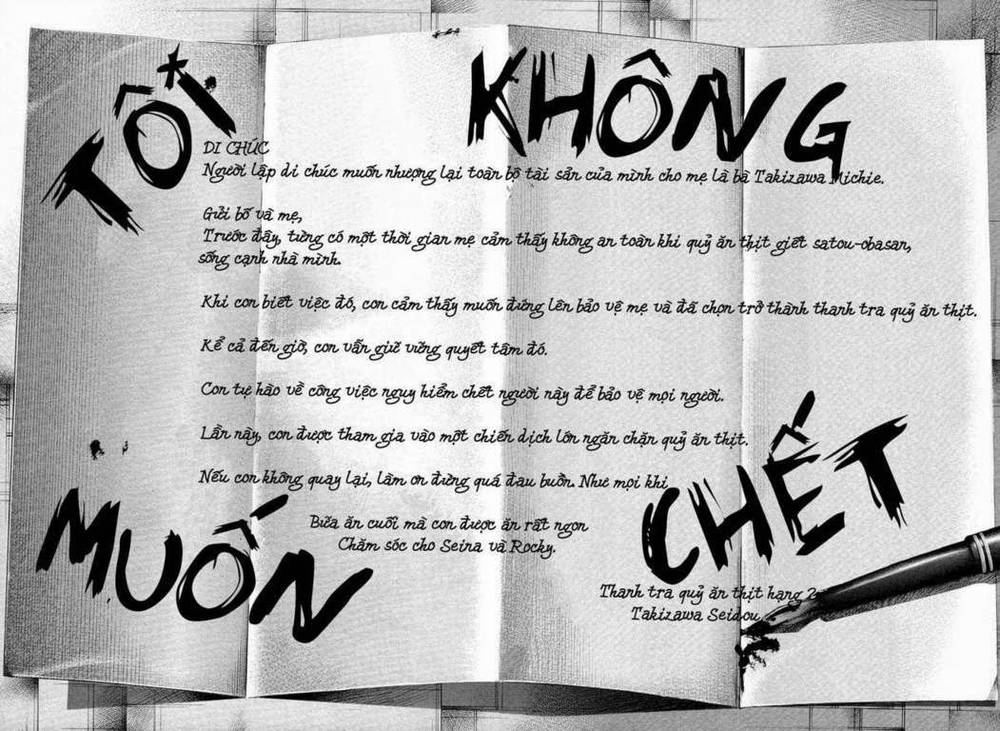 TÔI
KHÔNG
DI CHÚC
Người lập di chúc muốn nhượng lại toàn bộ tài sản của mình cho mẹ là bà Takizawa Michie.
Gửi bố và mẹ,
Trước đây, từng có một thời gian mẹ cảm thấy không an toàn khi quỷ ăn thịt giết satou-obasan,
sống cạnh nhà mình.
Khi con biết việc đó, con cảm thấy muốn đứng lên bảo vệ mẹ và đã chọn trở thành thanh tra quỷ ăn thịt.
Kể cả đến giờ, con vẫn giữ vững quyết tâm đó.
Con tự hào về công việc nguy hiểm chết người này để bảo vệ mọi người.
Lần này, con được tham gia vào một chiến dịch lớn ngăn chặn quỷ ăn thịt.
Nếu con không quay lại, làm ơn đừng quá đau buồn. Như mọi khi
Bữa ăn cuối mà con được ăn rất ngon
Chăm sóc cho Seina và Rocky.
MUỐN
CHẾT
Thanh tra quỷ ăn thịt hạng 2
Takizawa Seidou